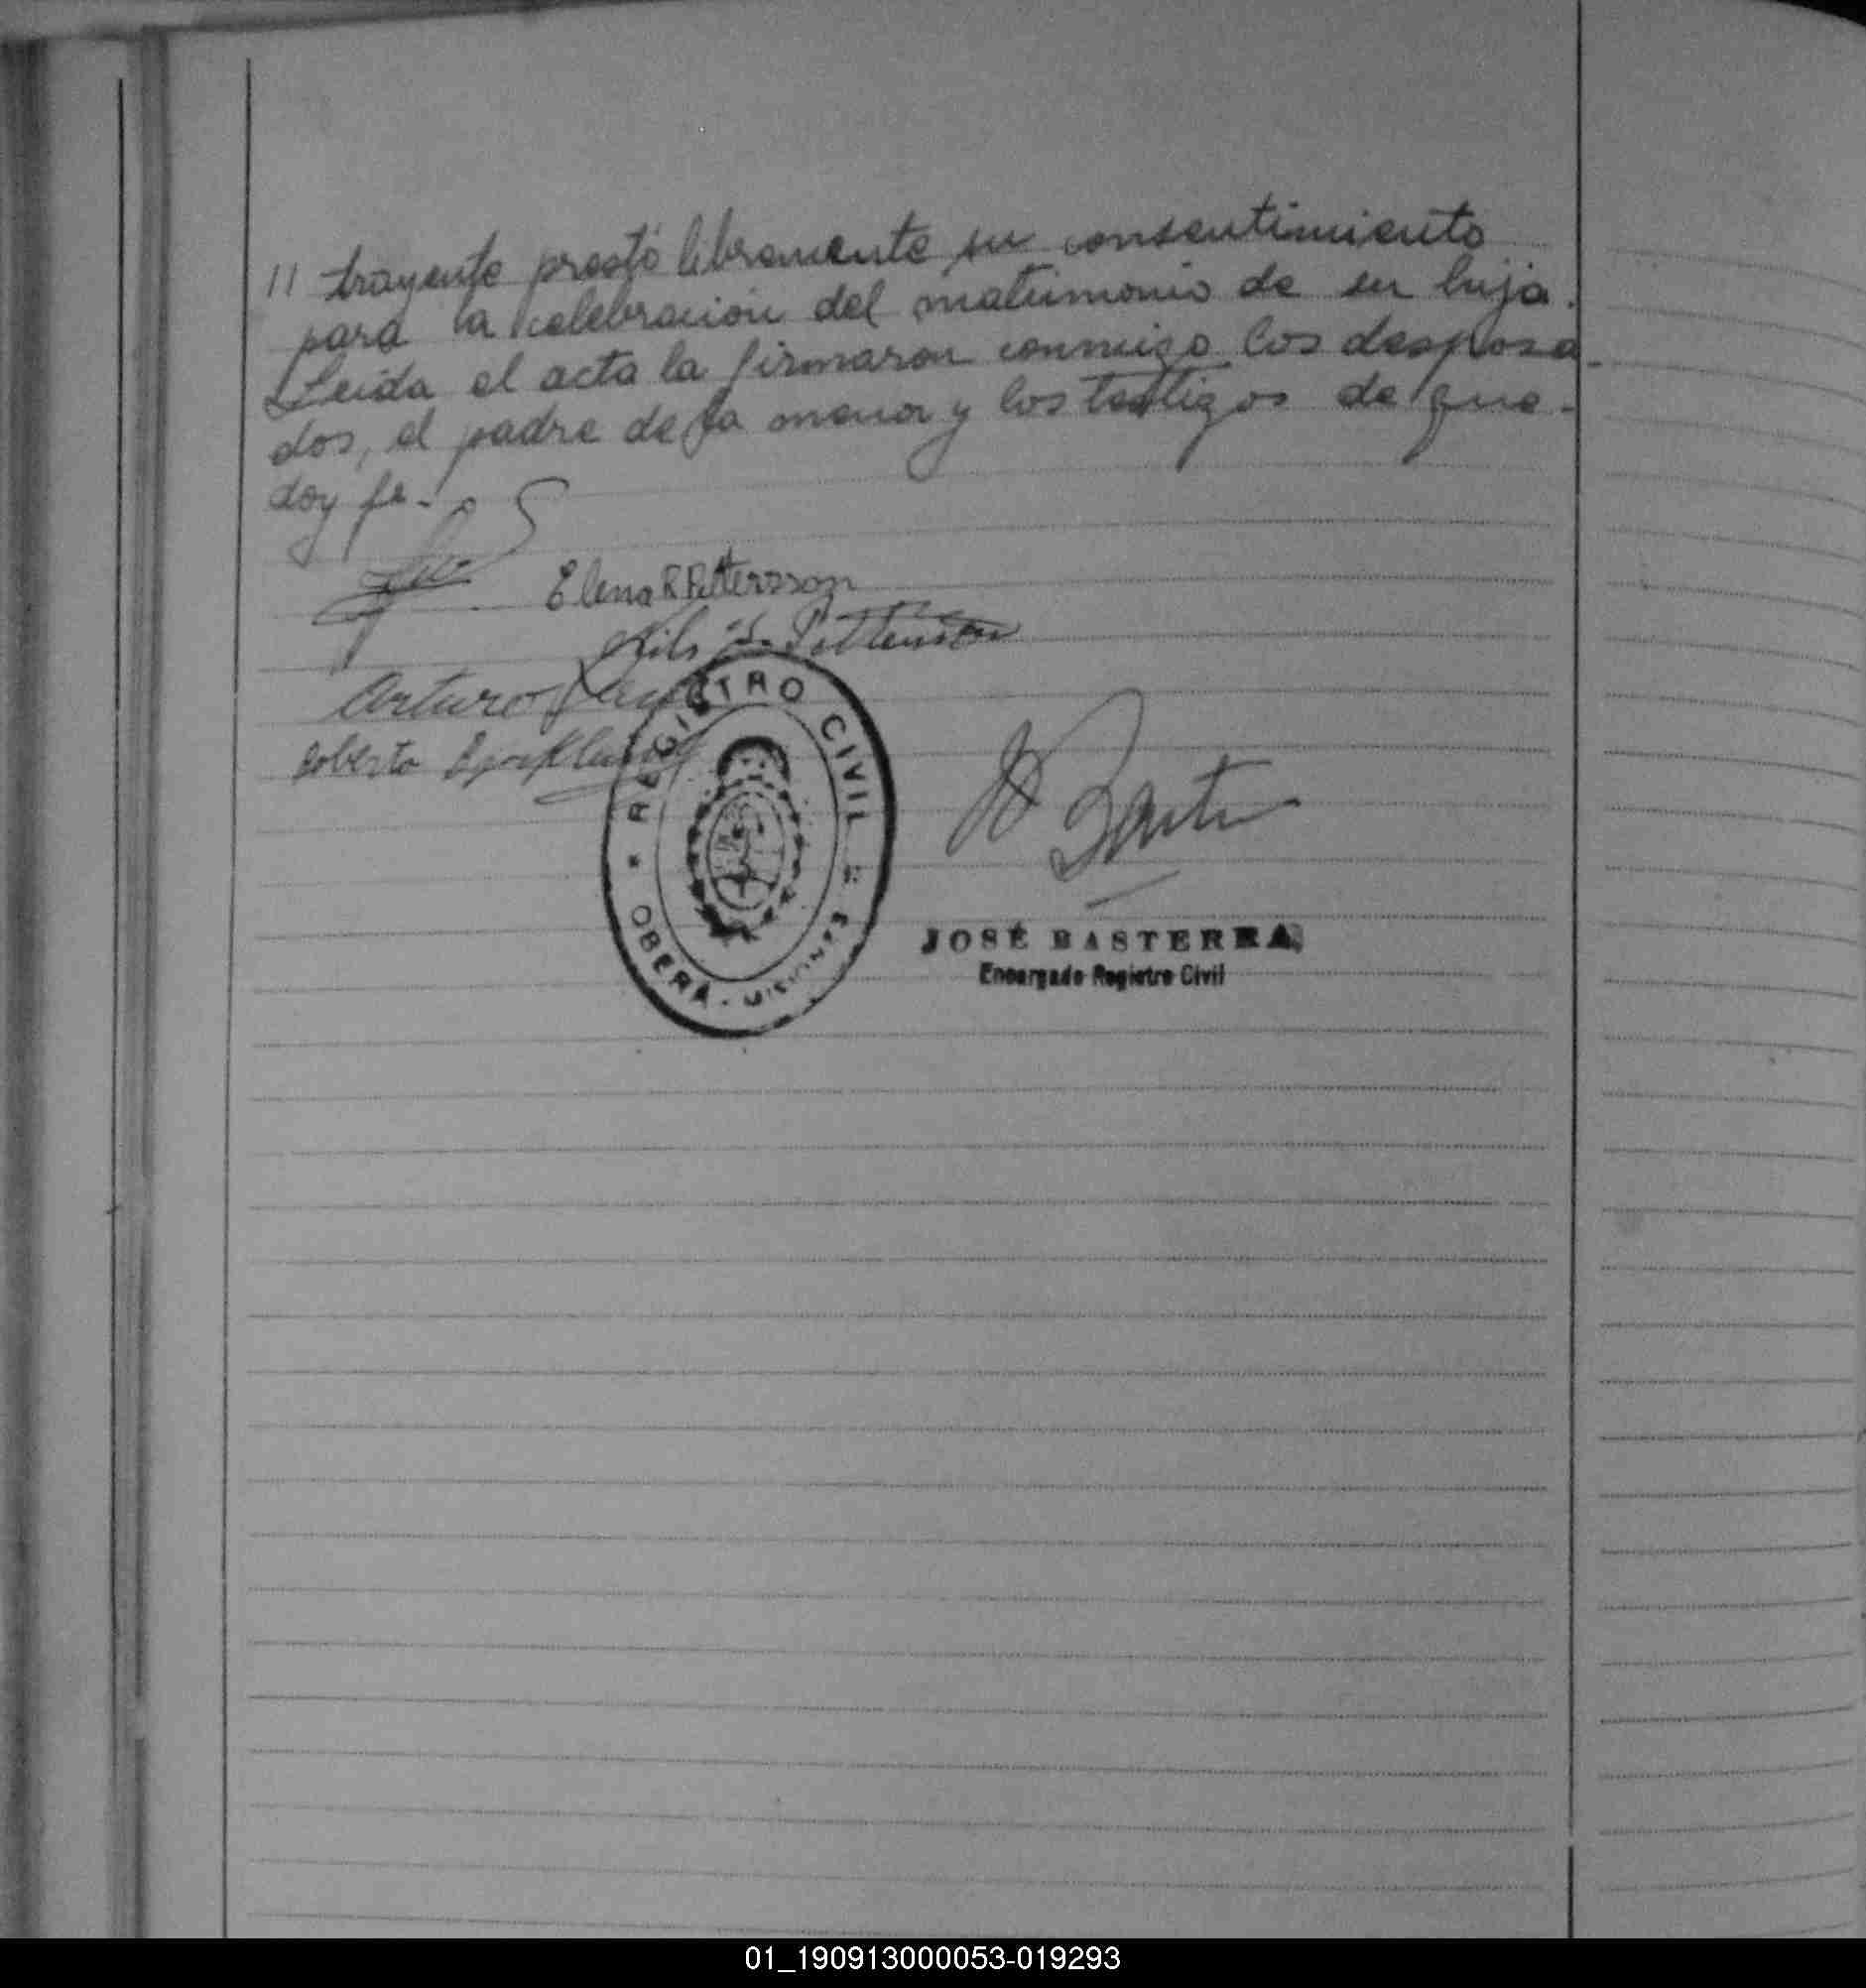 " trayente prestó libremente su consentimiento
para la celebración del matrimonio de su hija.
Leída el acta la firmaron conmigo los desposa-
dos, el padre de la menor y los testigos de que-
doy fe.-
Elena R Pettersson
Nils Pettersson
Arturo
Roberto
REGISTRO CIVIL
OBERÁ - MISIONES
JOSÉ BASTERRA
Encargado Registro Civil
01_190913000053-019293